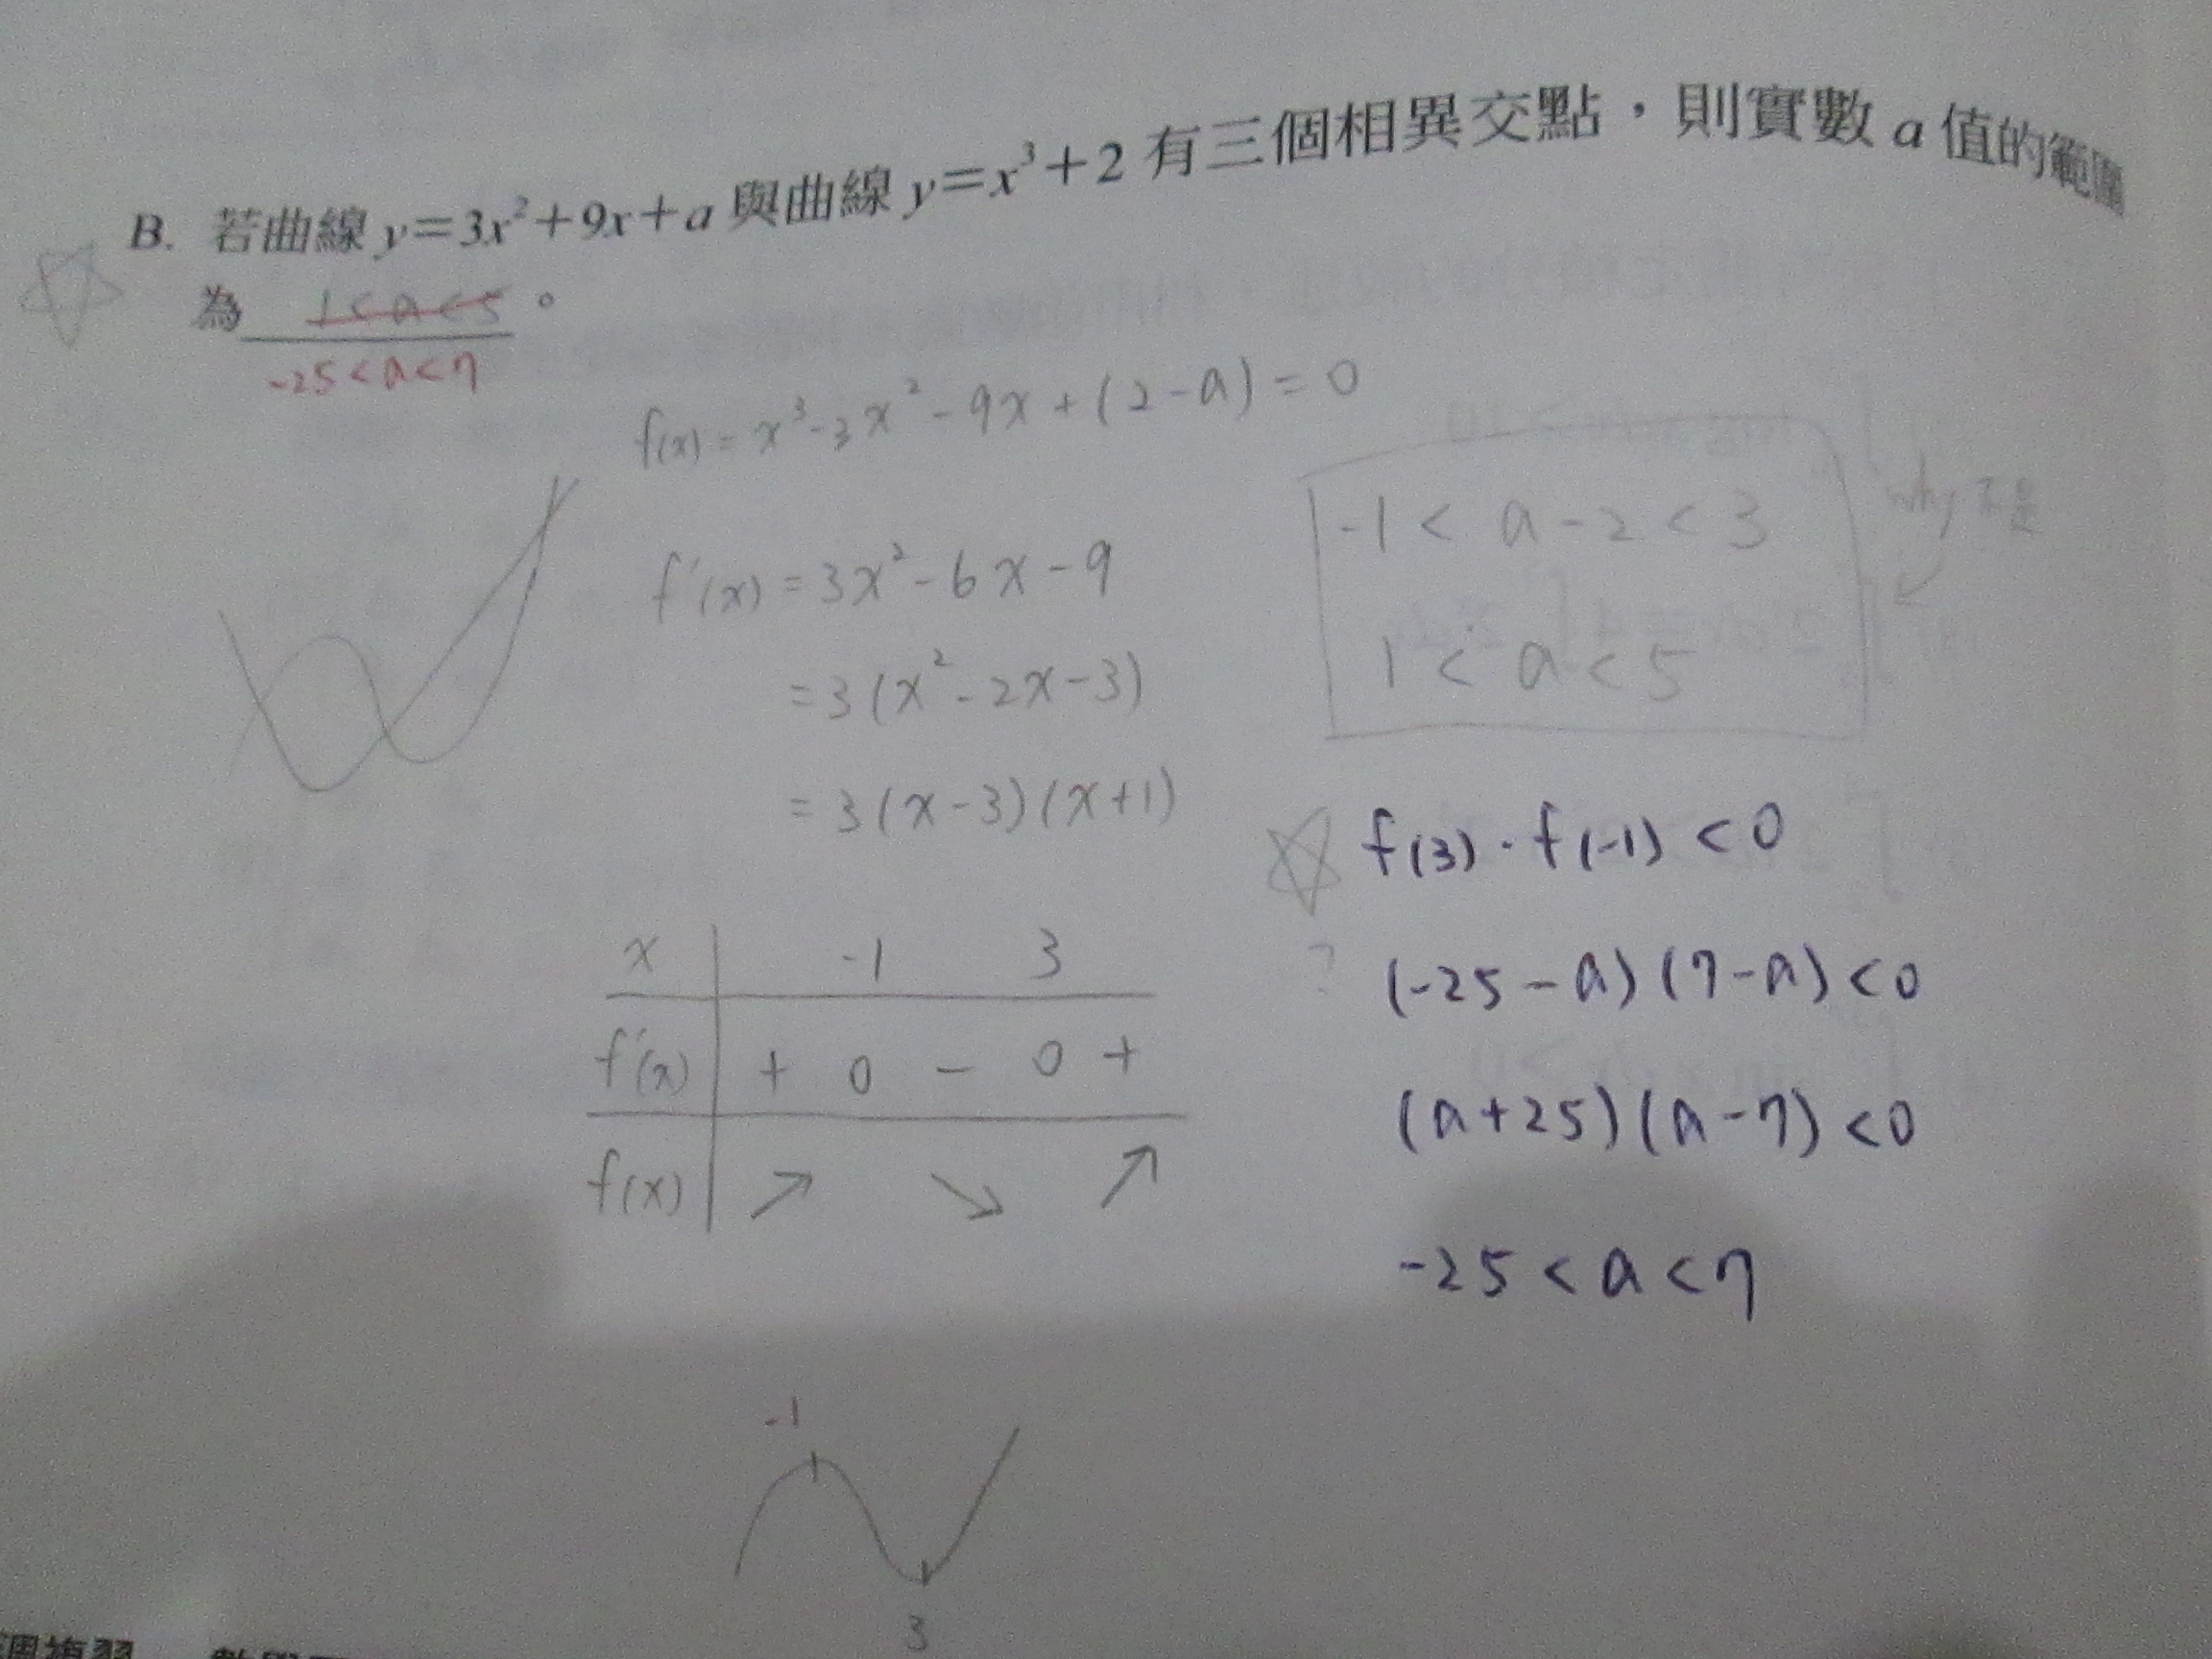 B. 若曲線 y=3x²+9x+a 與曲線 y=x³+2 有三個相異交點，則實數 a 值的範圍
為 1<a<5 。
-25<a<7
f(x)=x³-3x²-9x+(2-a)=0
f'(x)=3x²-6x-9
=3(x²-2x-3)
=3(x-3)(x+1)
-1<a-2<3
why 不是
1<a<5
☆ f(3)·f(-1)<0
? (-25-a)(7-a)<0
(a+25)(a-7)<0
-25<a<7
x -1 3
f'(x) + 0 - 0 +
f(x) ↗ ↘ ↗
-1
3
週複習